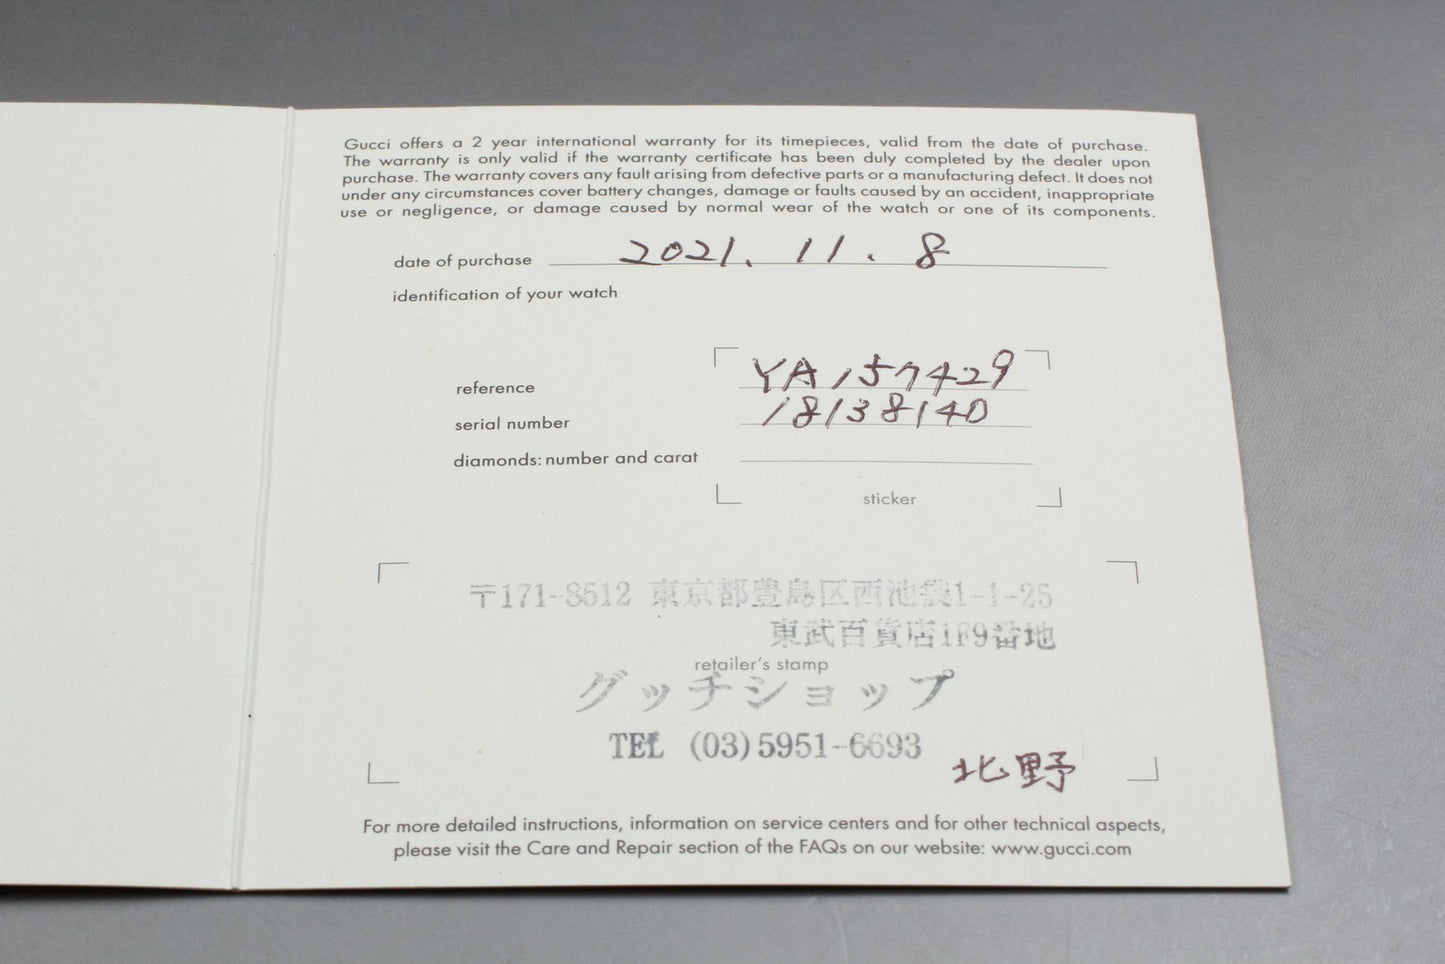 Gucci offers a 2 year international warranty for its timepieces, valid from the date of purchase.
The warranty is only valid if the warranty certificate has been duly completed by the dealer upon
purchase. The warranty covers any fault arising from defective parts or a manufacturing defect. It does not
under any circumstances cover battery changes, damage or faults caused by an accident, inappropriate
use or negligence, or damage caused by normal wear of the watch or one of its components.
date of purchase 2021.11.8
identification of your watch
reference YA157429
serial number 18138140
diamonds: number and carat
sticker
〒171-8512 東京都豊島区西池袋1-1-25
東武百貨店1F9番地
retailer's stamp
グッチショップ
TEL (03)5951-6693
北野
For more detailed instructions, information on service centers and for other technical aspects,
please visit the Care and Repair section of the FAQs on our website: www.gucci.com